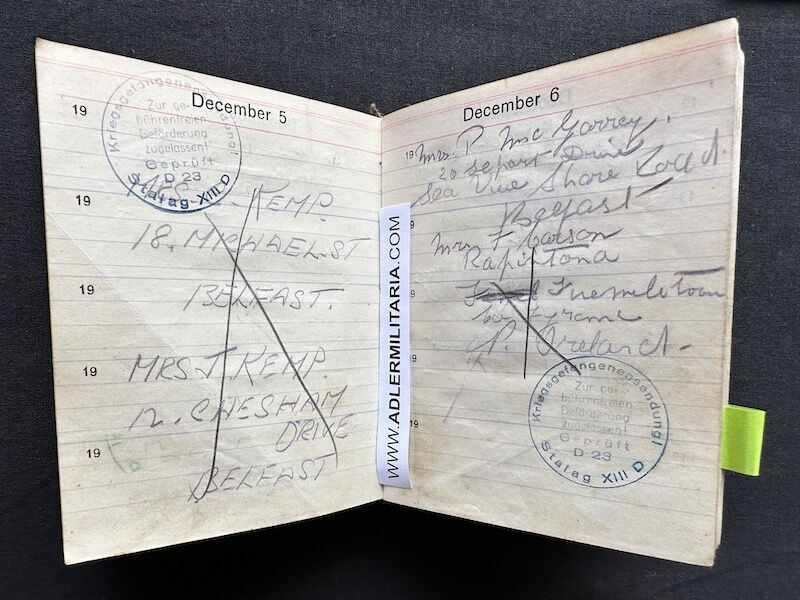 December 5
19
Kriegsgefangenensendung!
Zur ge-
bührenfreien
Beförderung
zugelassen!
Geprüft
D 23
Stalag XIII D
19
MRS KEMP.
18. MICHAEL ST
19
BELFAST.
19
MRS J. KEMP.
12. CHESHAM
DRIVE
19
BELFAST
WWW.ADLERMILITARIA.COM
December 6
19
Mrs. P. Mc Garrey.
20 Drive
Sea View Shore Road.
Belfast
19
Mrs F Carson
19
Fivemiletown
Co Tyrone
N. Ireland.
19
19
Kriegsgefangenensendung!
Zur ge-
bührenfreien
Beförderung
zugelassen!
Geprüft
D 23
Stalag XIII D